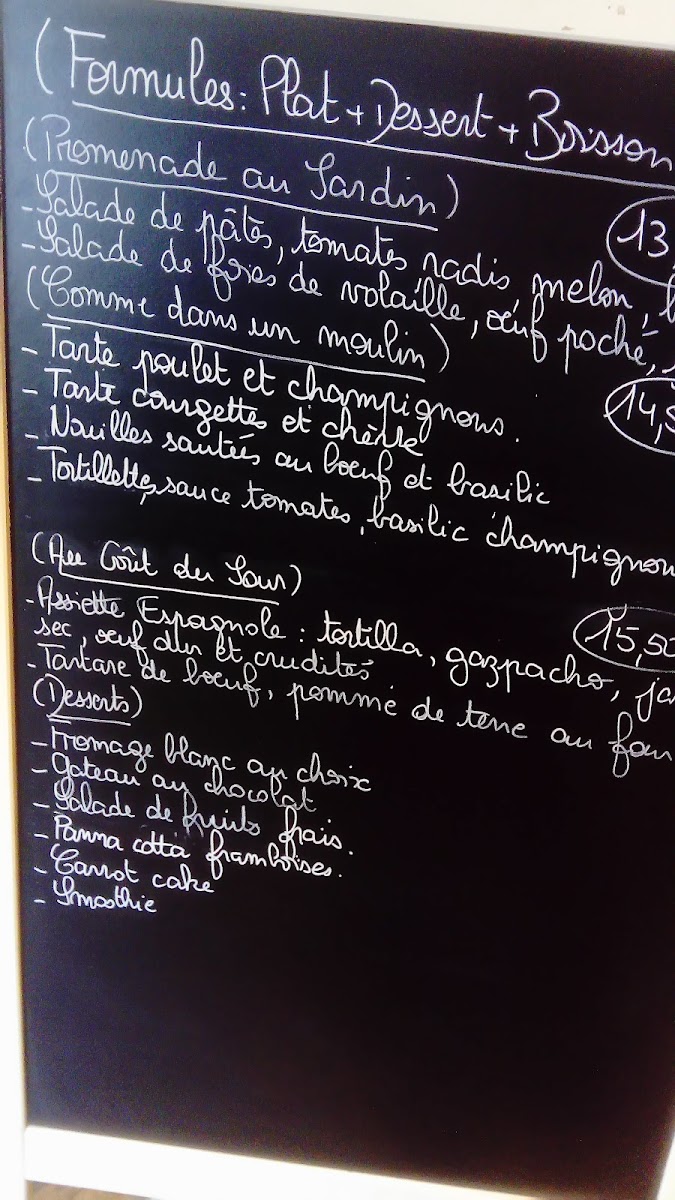 (Formules: Plat + Dessert + Boisson
(Promenade au Jardin)
13,
- Salade de pâtes, tomates radis melon,
- Salade de foies de volaille, œuf poché,
(Comme dans un moulin)
14,5
- Tarte poulet et champignons.
- Tarte courgettes et chèvre
- Nouilles sautées au boeuf et basilic
- Tortillettes, sauce tomates, basilic champignon
(Au Goût du Jour)
15,50
- Assiette Espagnole : tortilla, gazpacho, ja
sec, œuf dur et crudités
- Tartare de boeuf, pomme de terre au four
(Desserts)
- Fromage blanc au choix
- Gateau au chocolat
- Salade de fruits frais.
- Panna cotta framboises.
- Carrot cake
- Smoothie